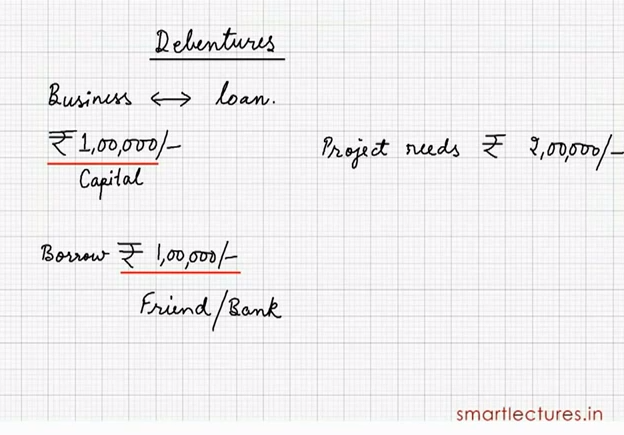 Debentures
Business ↔ loan.
₹ 1,00,000/-
Project needs ₹ 2,00,000/-
Capital
Borrow ₹ 1,00,000/-
Friend/Bank
smartlectures.in